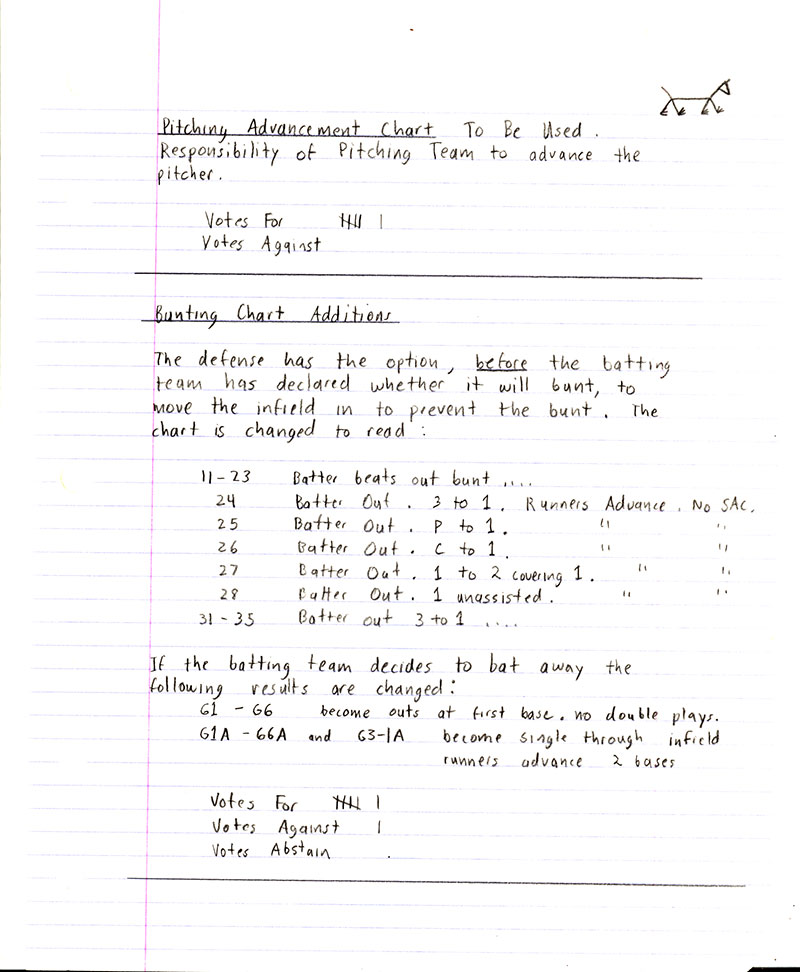 Pitching Advancement Chart To Be Used.
Responsibility of Pitching Team to advance the
pitcher.
Votes For 𝍸 |
Votes Against
Bunting Chart Additions
The defense has the option, before the batting
team has declared whether it will bunt, to
move the infield in to prevent the bunt. The
chart is changed to read:
11-23 Batter beats out bunt ....
24 Batter Out. 3 to 1. Runners Advance. No SAC.
25 Batter Out. P to 1. " "
26 Batter Out. C to 1. " "
27 Batter Out. 1 to 2 covering 1. " "
28 Batter Out. 1 unassisted. " "
31-35 Batter out 3 to 1 ....
If the batting team decides to bat away the
following results are changed:
G1 - G6 become outs at first base. no double plays.
G1A - G6A and G3-1A become single through infield
runners advance 2 bases
Votes For 𝍸 |
Votes Against |
Votes Abstain .